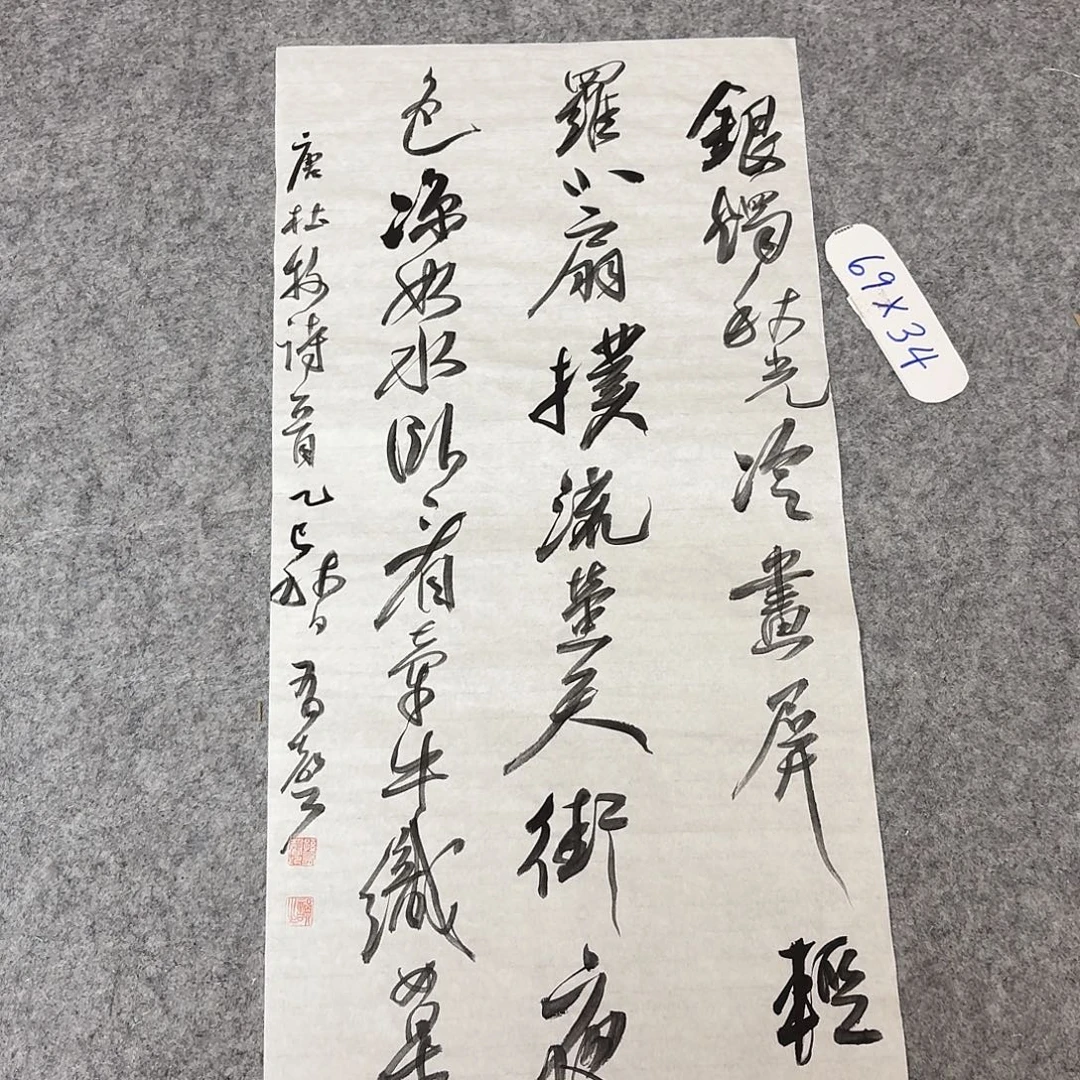 銀燭秋光冷畫屏輕
羅小扇撲流螢天街夜
色凉如水卧看牽牛織女星
唐杜牧詩一首乙巳秋日
69X34